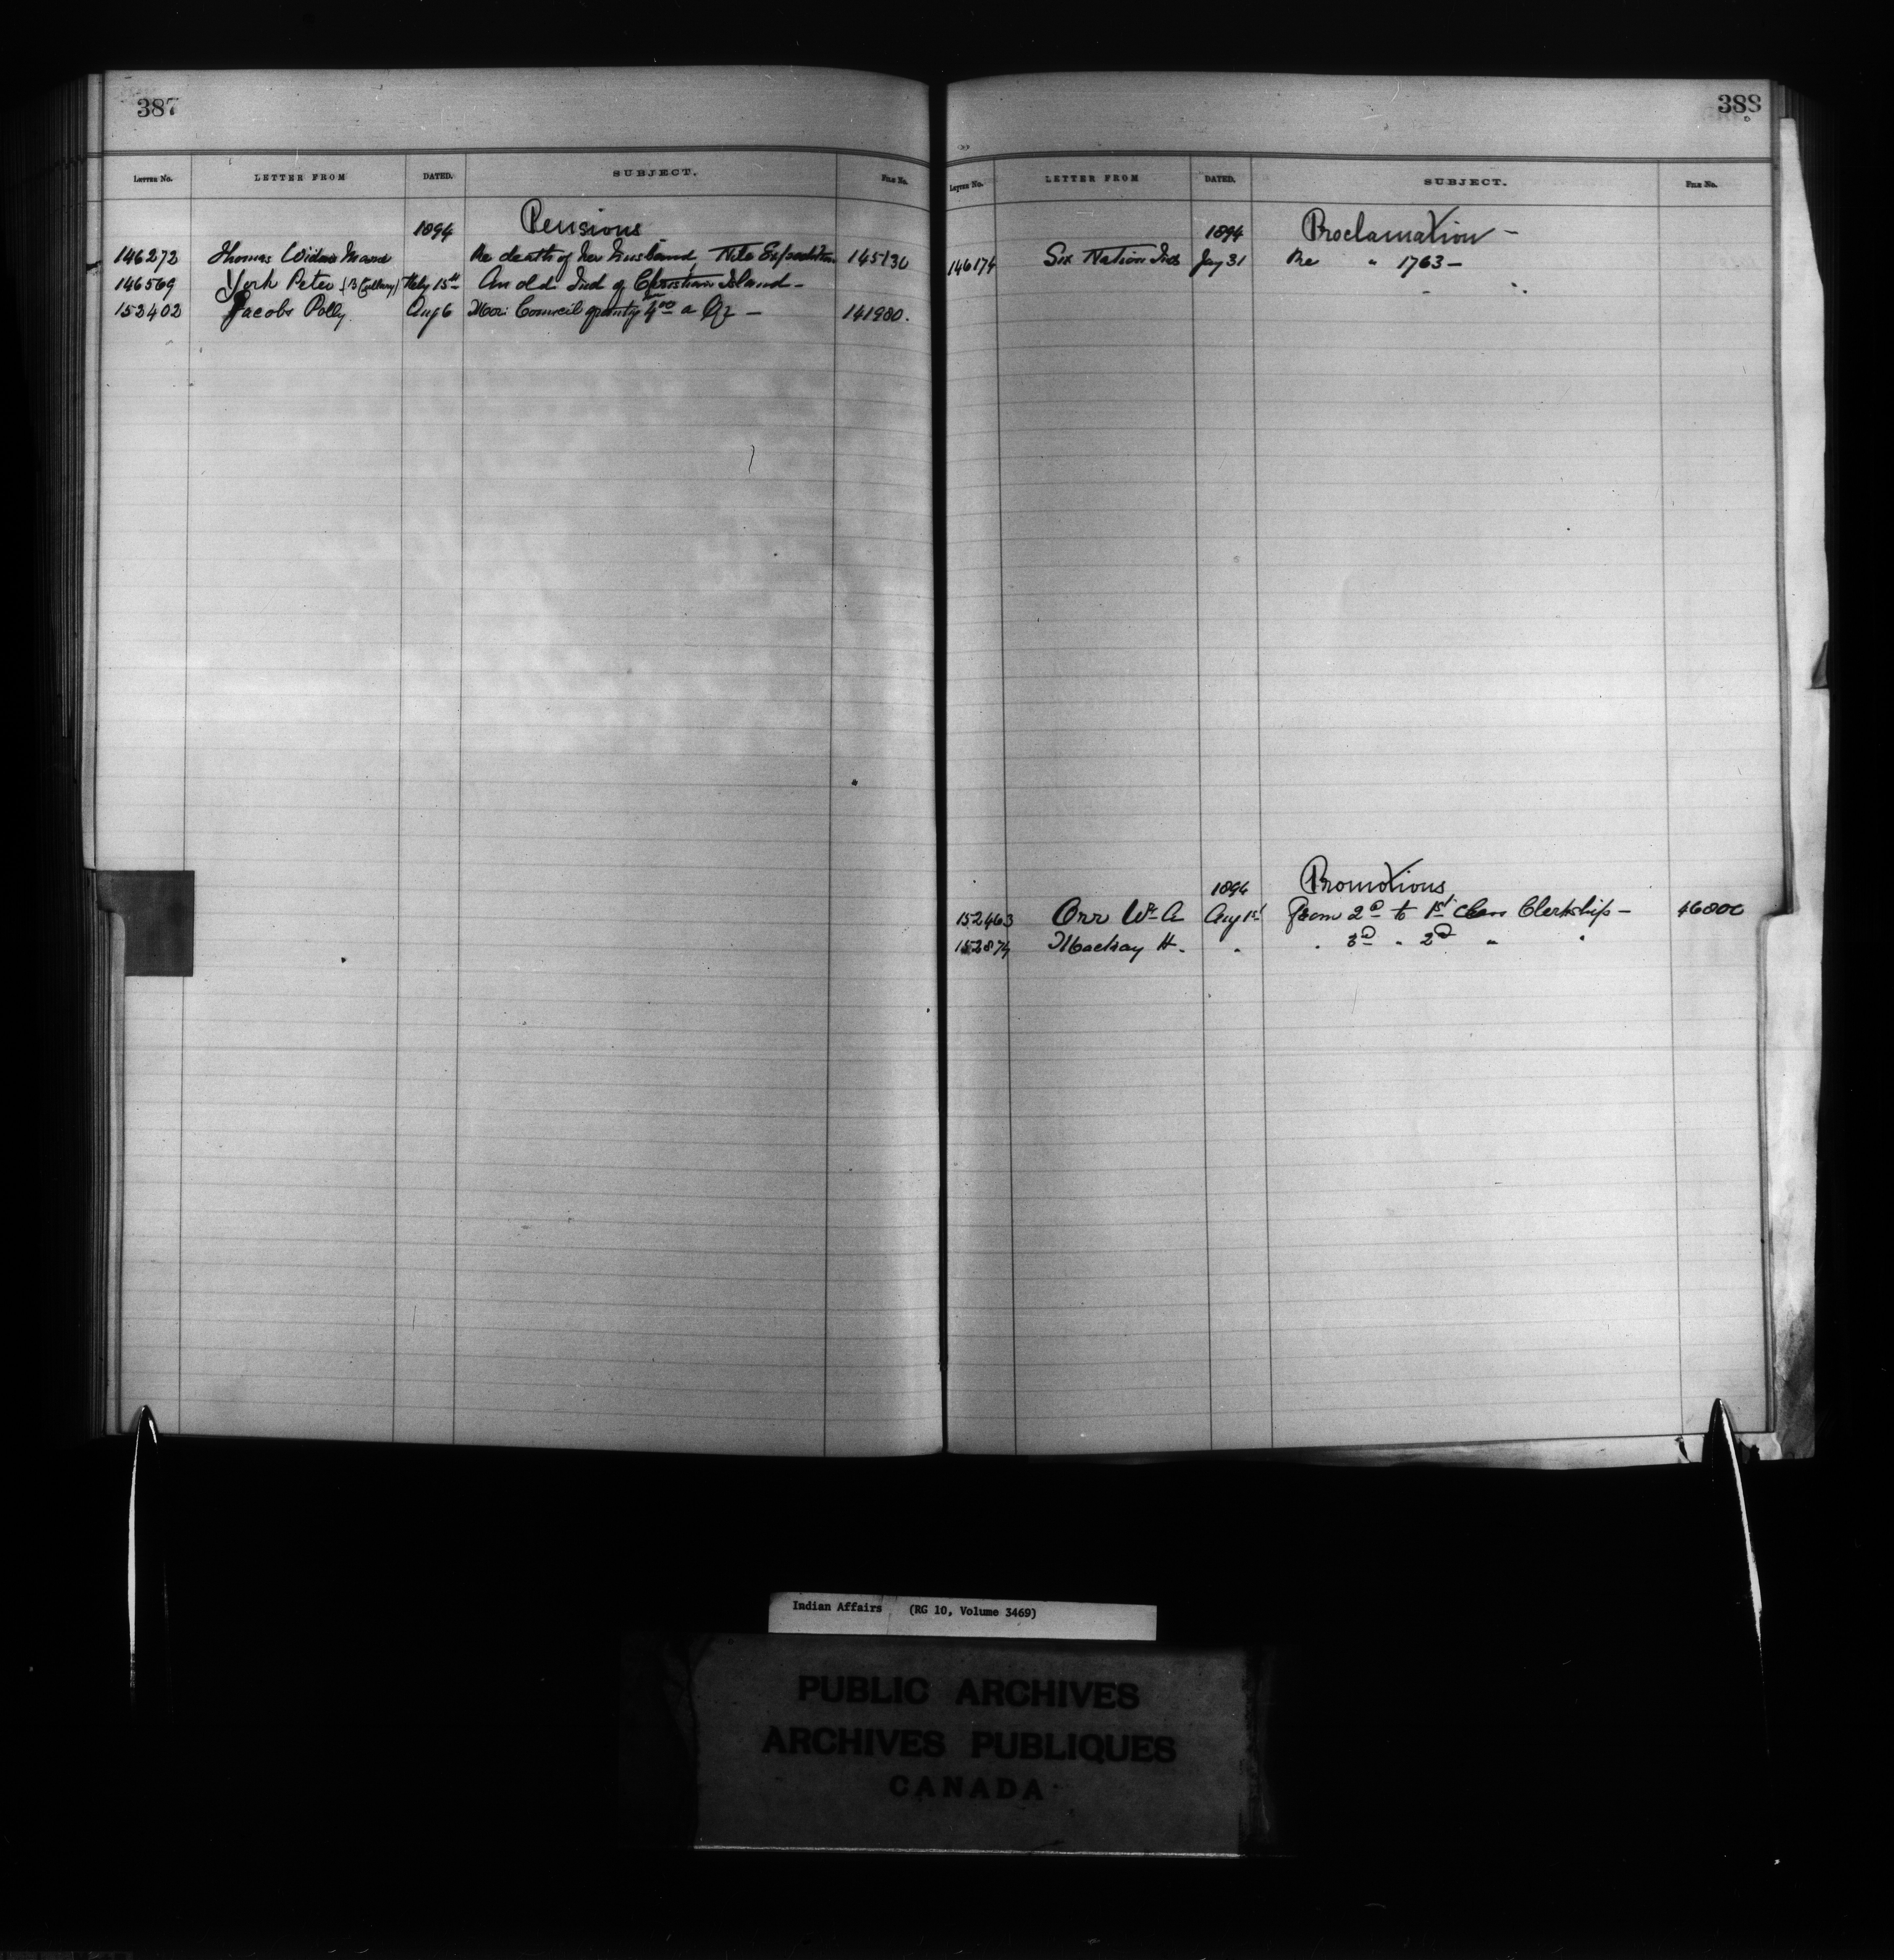 387
LETTER NO. LETTER FROM DATED. SUBJECT. FILE NO.
1894 Pensions
146272 Thomas Widow Re death of her husband, Nile Expedition 145130
146569 York Peter Feby 15th An old Ind of Christian Island -
152402 Jacobs Polly Aug 6 Council 4.00 a Qr - 141980.
388
LETTER NO. LETTER FROM DATED. SUBJECT. FILE NO.
1894 Proclamation -
146174 Six Nation Inds Jay 31 Re " 1763 -
1894 Promotions
152463 Orr Wm A Aug 1st From 2d to 1st Class Clerkship - 46800
152874 Mackay H. " " 3d " 2d " "
Indian Affairs (RG 10, Volume 3469)
PUBLIC ARCHIVES
ARCHIVES PUBLIQUES
CANADA